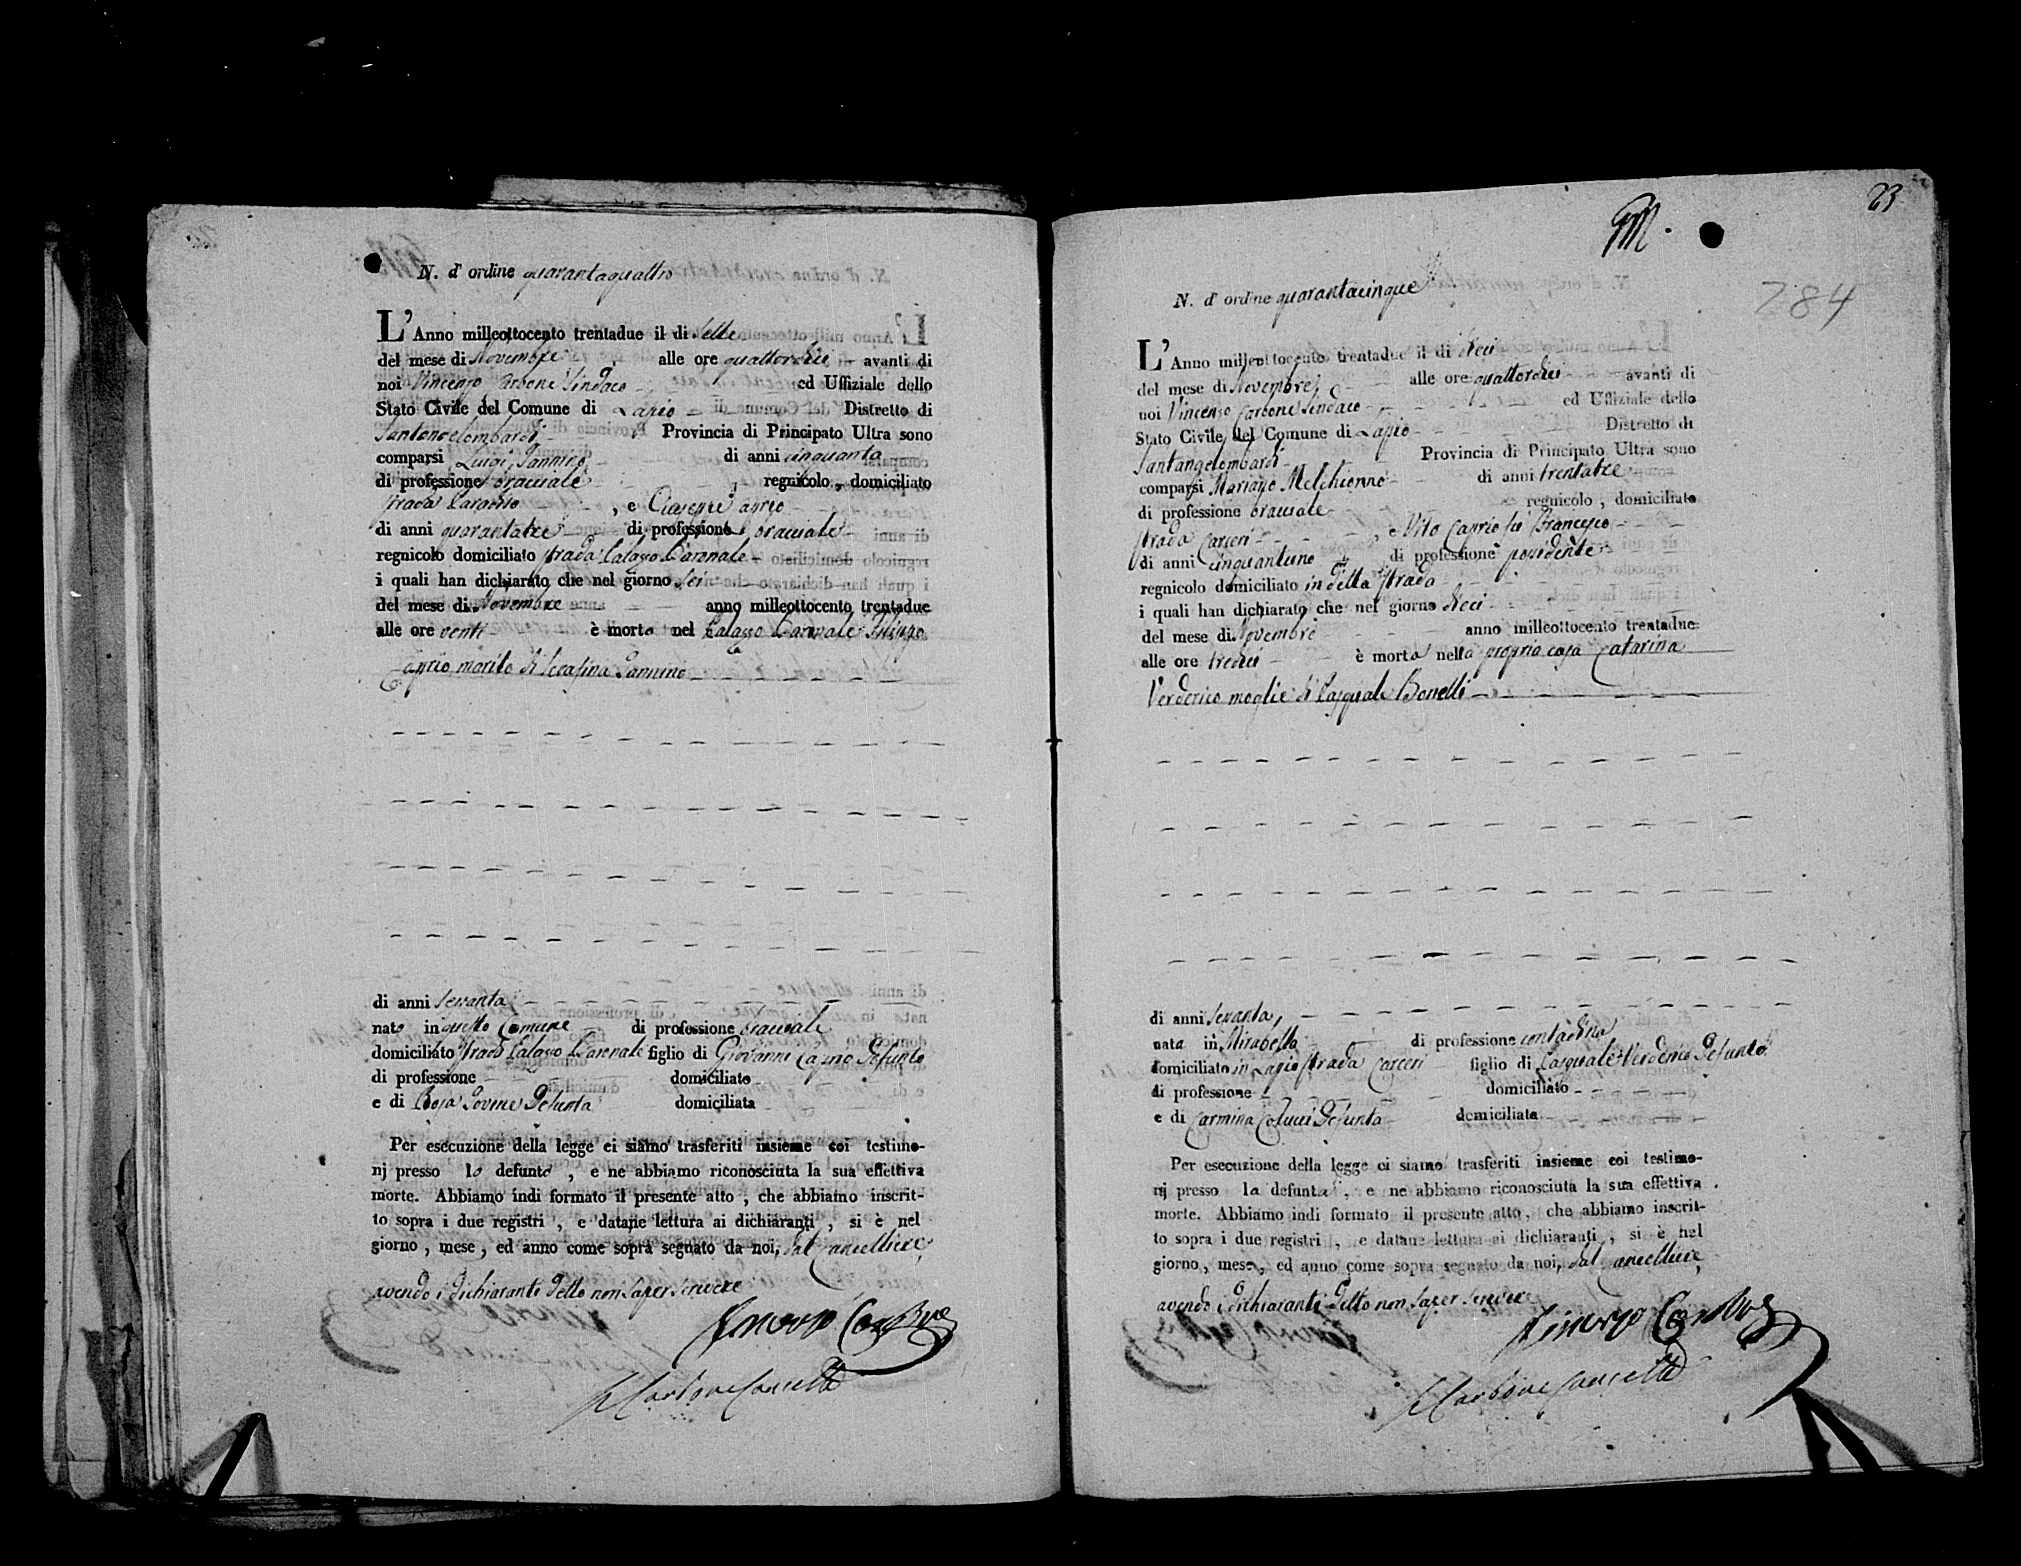 N. d' ordine quarantaquattro
L'Anno milleottocento trentadue il di sette
del mese di Novembre alle ore quattordici avanti di
noi Vincenzo Carbone Sindaco ed Uffiziale dello
Stato Civile del Comune di Lapio Distretto di
Santangelombardi Provincia di Principato Ultra sono
comparsi Luigi Jannino di anni cinquanta
di professione bracciale regnicolo, domiciliato
strada , e Giuseppe Caprio
di anni quarantatre di professione bracciale
regnicolo domiciliato strada Palazzo Baronale
i quali han dichiarato che nel giorno sei
del mese di Novembre anno milleottocento trentadue
alle ore venti è morto nel Palazzo Baronale Filippo
Caprio marito di Serafina Jannino
di anni sessanta
nato in questo Comune di professione bracciale
domiciliato strada Palazzo Baronale figlio di Giovanni Caprio defunto
di professione domiciliato
e di Rosa Iovine defunta domiciliata
Per esecuzione della legge ci siamo trasferiti insieme coi testimo-
nj presso lo defunto , e ne abbiamo riconosciuta la sua effettiva
morte. Abbiamo indi formato il presente atto , che abbiamo inscrit-
to sopra i due registri , e datane lettura ai dichiaranti , si è nel
giorno , mese , ed anno come sopra segnato da noi, dal Cancelliere
avendo i dichiaranti detto non saper scrivere
Vincenzo Carbone
Carbone Cancell.e
23
M.
284
N. d' ordine quarantacinque
L'Anno milleottocento trentadue il di dieci
del mese di Novembre alle ore quattordici avanti di
noi Vincenzo Carbone Sindaco ed Uffiziale dello
Stato Civile del Comune di Lapio Distretto di
Santangelombardi Provincia di Principato Ultra sono
comparsi Mariano Melchionno di anni trentatre
di professione bracciale regnicolo , domiciliato
strada Carceri , e Vito Caprio fu Francesco
di anni cinquantuno di professione possidente
regnicolo domiciliato in detta strada
i quali han dichiarato che nel giorno dieci
del mese di Novembre anno milleottocento trentadue
alle ore tredici è morta nella propria casa Catarina
Verderico moglie di Pasquale Bonelli
di anni sessanta
nata in Mirabella di professione contadina
domiciliato in Lapio strada Carceri figlio di Pasquale Verderico defunto
di professione domiciliato
e di Carmina Colucci defunta domiciliata
Per esecuzione della legge ci siamo trasferiti insieme coi testimo-
nj presso la defunta , e ne abbiamo riconosciuta la sua effettiva
morte. Abbiamo indi formato il presente atto, che abbiamo inscrit-
to sopra i due registri , e datane lettura ai dichiaranti , si è nel
giorno , mese , ed anno come sopra segnato da noi, dal Cancelliere
avendo i dichiaranti detto non saper scrivere
Vincenzo Carbone
Carbone Cancell.e